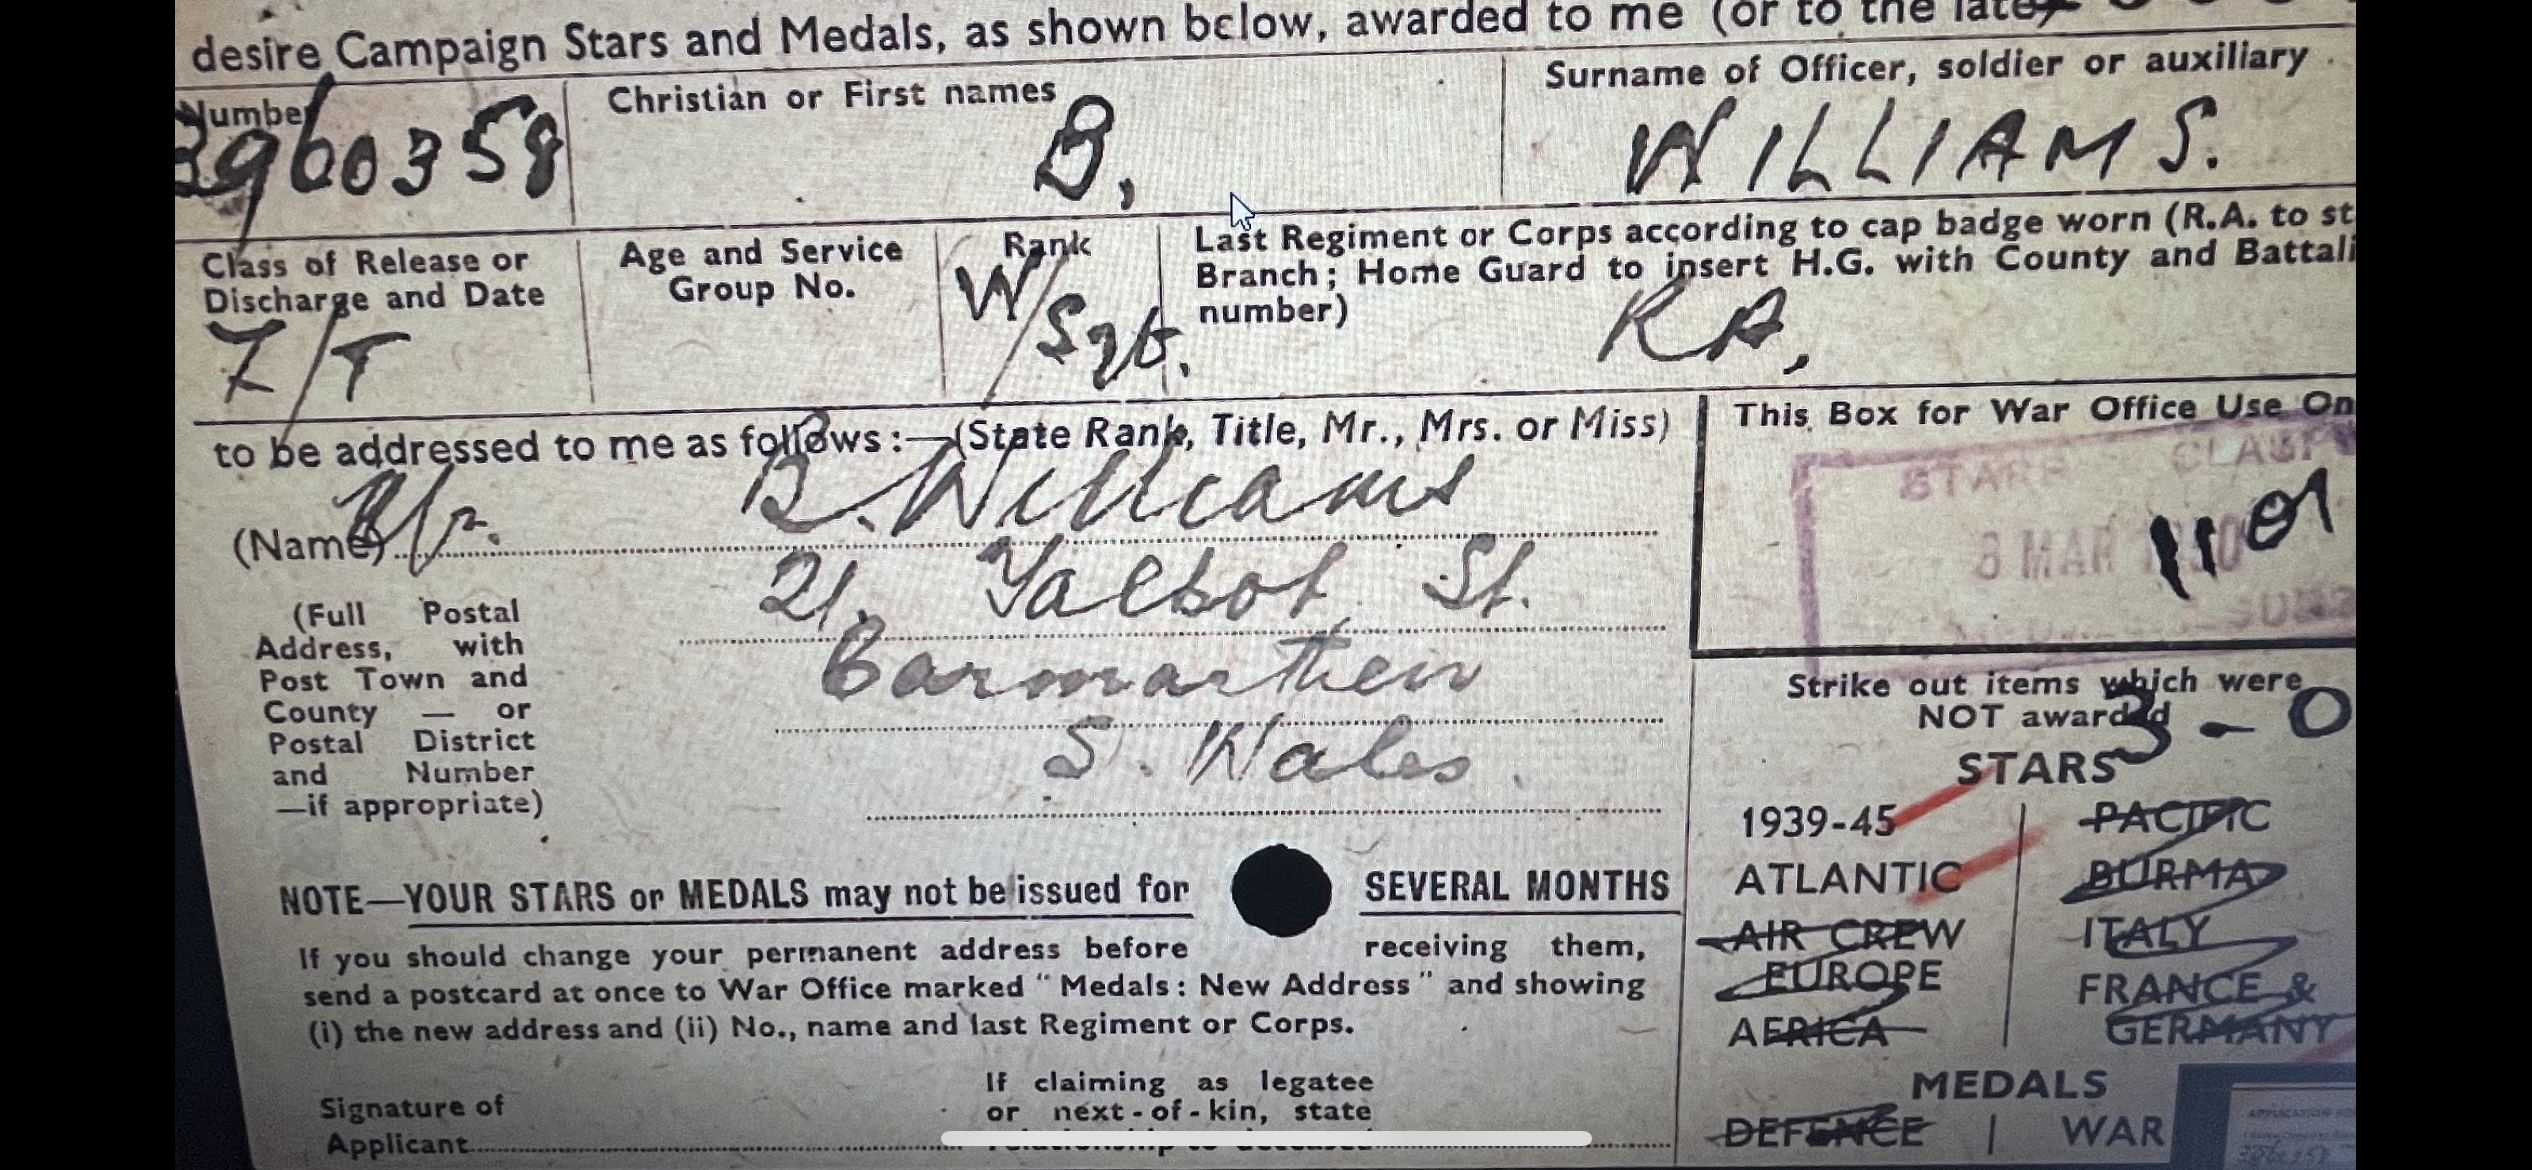 desire Campaign Stars and Medals, as shown below, awarded to me (or to the late)
Number
3960358
Christian or First names
B,
Surname of Officer, soldier or auxiliary
WILLIAMS.
Class of Release or
Discharge and Date
Z/T
Age and Service
Group No.
Rank
W/Sgt.
Last Regiment or Corps according to cap badge worn (R.A. to st
Branch; Home Guard to insert H.G. with County and Battali
number)
RA,
to be addressed to me as follows:—(State Rank, Title, Mr., Mrs. or Miss)
(Name) Mr. B. Williams
21, Talbot St.
Carmarthen
S. Wales.
(Full Postal
Address, with
Post Town and
County — or
Postal District
and Number
—if appropriate)
This Box for War Office Use On
CLASP
STARP
3 MAR
Strike out items which were
NOT awarded
3 - 0
STARS
1939-45
ATLANTIC
AIR CREW
EUROPE
AFRICA
PACIFIC
BURMA
ITALY
FRANCE &
GERMANY
MEDALS
DEFENCE | WAR
NOTE—YOUR STARS or MEDALS may not be issued for SEVERAL MONTHS
If you should change your permanent address before receiving them,
send a postcard at once to War Office marked "Medals: New Address" and showing
(i) the new address and (ii) No., name and last Regiment or Corps.
Signature of
Applicant
If claiming as legatee
or next-of-kin, state